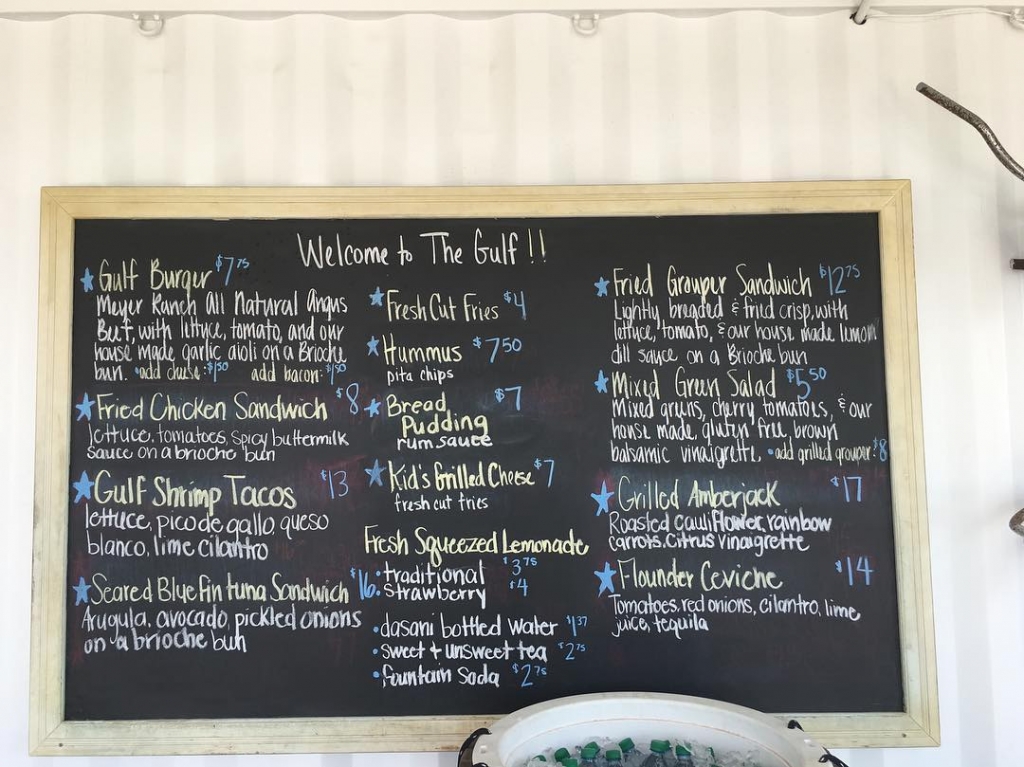 Welcome to The Gulf !!
Gulf Burger $7.75
Meyer Ranch All Natural Angus
Beef, with lettuce, tomato, and our
house made garlic aioli on a Brioche
bun. • add cheese: $1.50 add bacon: $1.50
Fried Chicken Sandwich $8
lettuce, tomatoes, spicy buttermilk
sauce on a brioche bun
Gulf Shrimp Tacos $13
lettuce, pico de gallo, queso
blanco, lime cilantro
Seared Bluefin tuna Sandwich $16.
Arugula, avocado, pickled onions
on a brioche bun
Fresh Cut Fries $4
Hummus $7.50
pita chips
Bread $7
Pudding
rum sauce
Kid's Grilled Cheese $7
fresh cut fries
Fresh Squeezed Lemonade
• traditional $3.75
strawberry $4
• dasani bottled water $1.37
• sweet + unsweet tea $2.75
• fountain soda $2.75
Fried Grouper Sandwich $12.75
Lightly breaded & fried crisp, with
lettuce, tomato, & our house made lemon
dill sauce on a Brioche bun
Mixed Green Salad $5.50
Mixed greens, cherry tomatoes, & our
house made, gluten free, brown
balsamic vinaigrette. • add grilled grouper: $8
Grilled Amberjack $17
Roasted cauliflower, rainbow
carrots, citrus vinaigrette
Flounder Ceviche $14
Tomatoes, red onions, cilantro, lime
juice, tequila